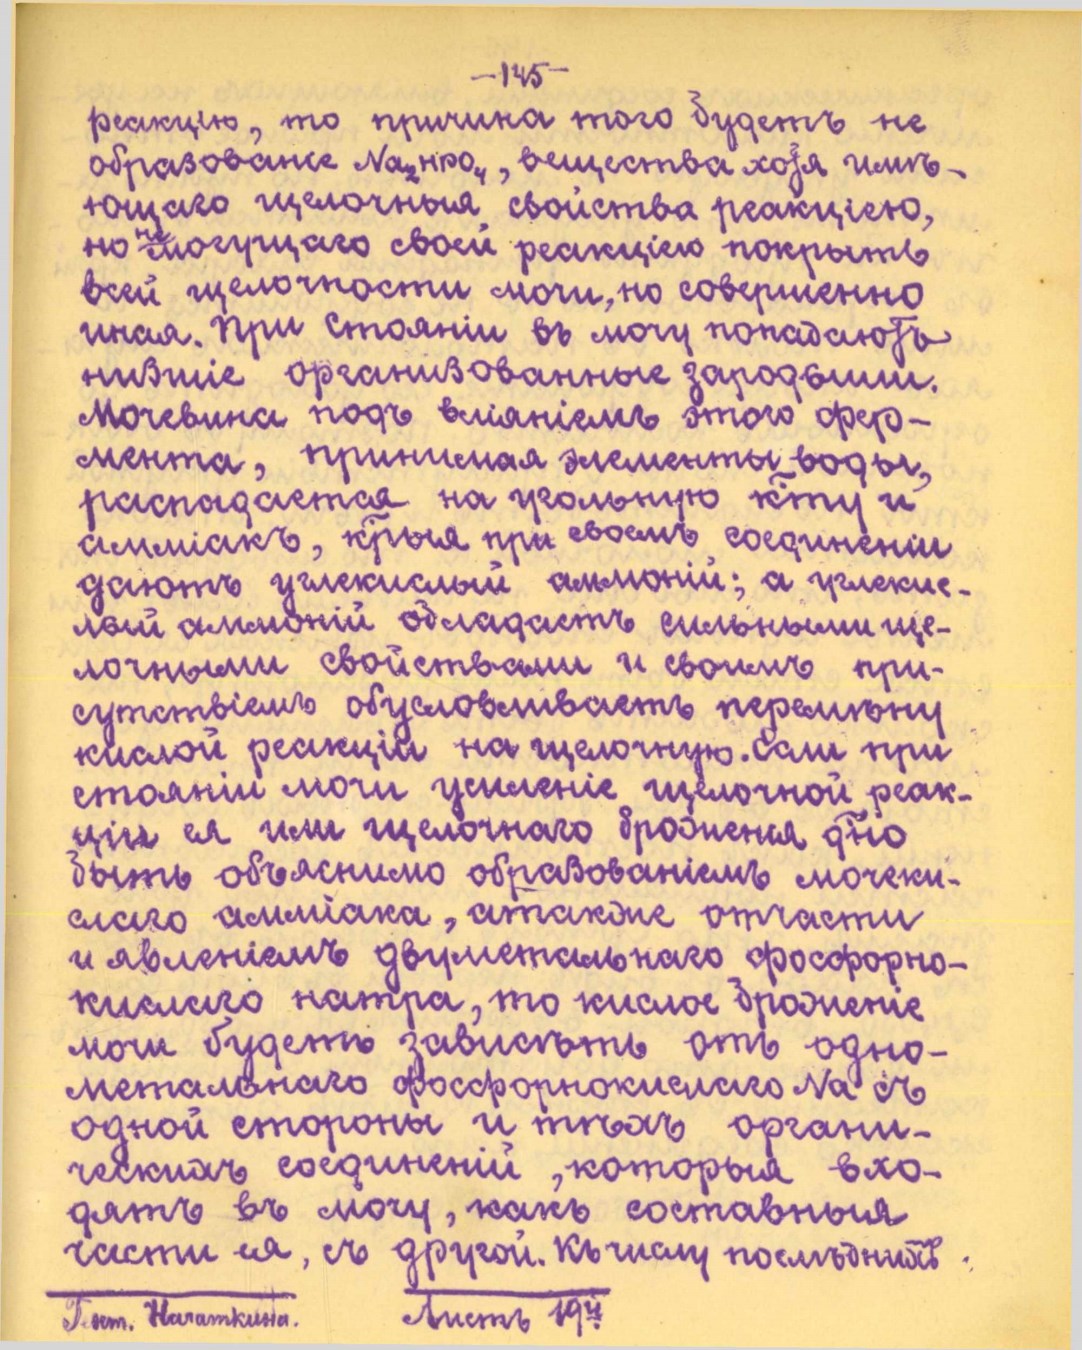 —145—
реакцію, то причина того будетъ не
образованіе Na₂HPO₄, вещества хотя имѣ-
ющаго щелочныя свойства реакціею,
но не могущаго своей реакціею покрыть
всей щелочности мочи, но совершенно
иная. При стояніи въ мочу попадаютъ
низшіе организованные зародыши.
Мочевина подъ вліяніемъ этого фер-
мента, принимая элементы воды,
распадается на угольную к̅ту и
амміакъ, к̅рыя при своемъ соединеніи
даютъ углекислый аммоній; а углекис-
лый аммоній обладаетъ сильными ще-
лочными свойствами и своимъ при-
сутствіемъ обусловливаетъ перемѣну
кислой реакціи на щелочную. Если при
стояніи мочи усиленіе щелочной реак-
ціи ея или щелочнаго броженія д̅но
быть объяснимо образованіемъ мочеки-
слаго амміака, а также отчасти
и явленіемъ двуметальнаго фосфорно-
кислаго натра, то кислое броженіе
мочи будетъ зависѣть отъ одно-
метальнаго фосфорнокислаго Na съ
одной стороны и тѣхъ органи-
ческихъ соединеній, которыя вхо-
дятъ въ мочу, какъ составныя
части ея, съ другой. Къ числу послѣднихъ
Гект. Начаткина. Листъ 19й